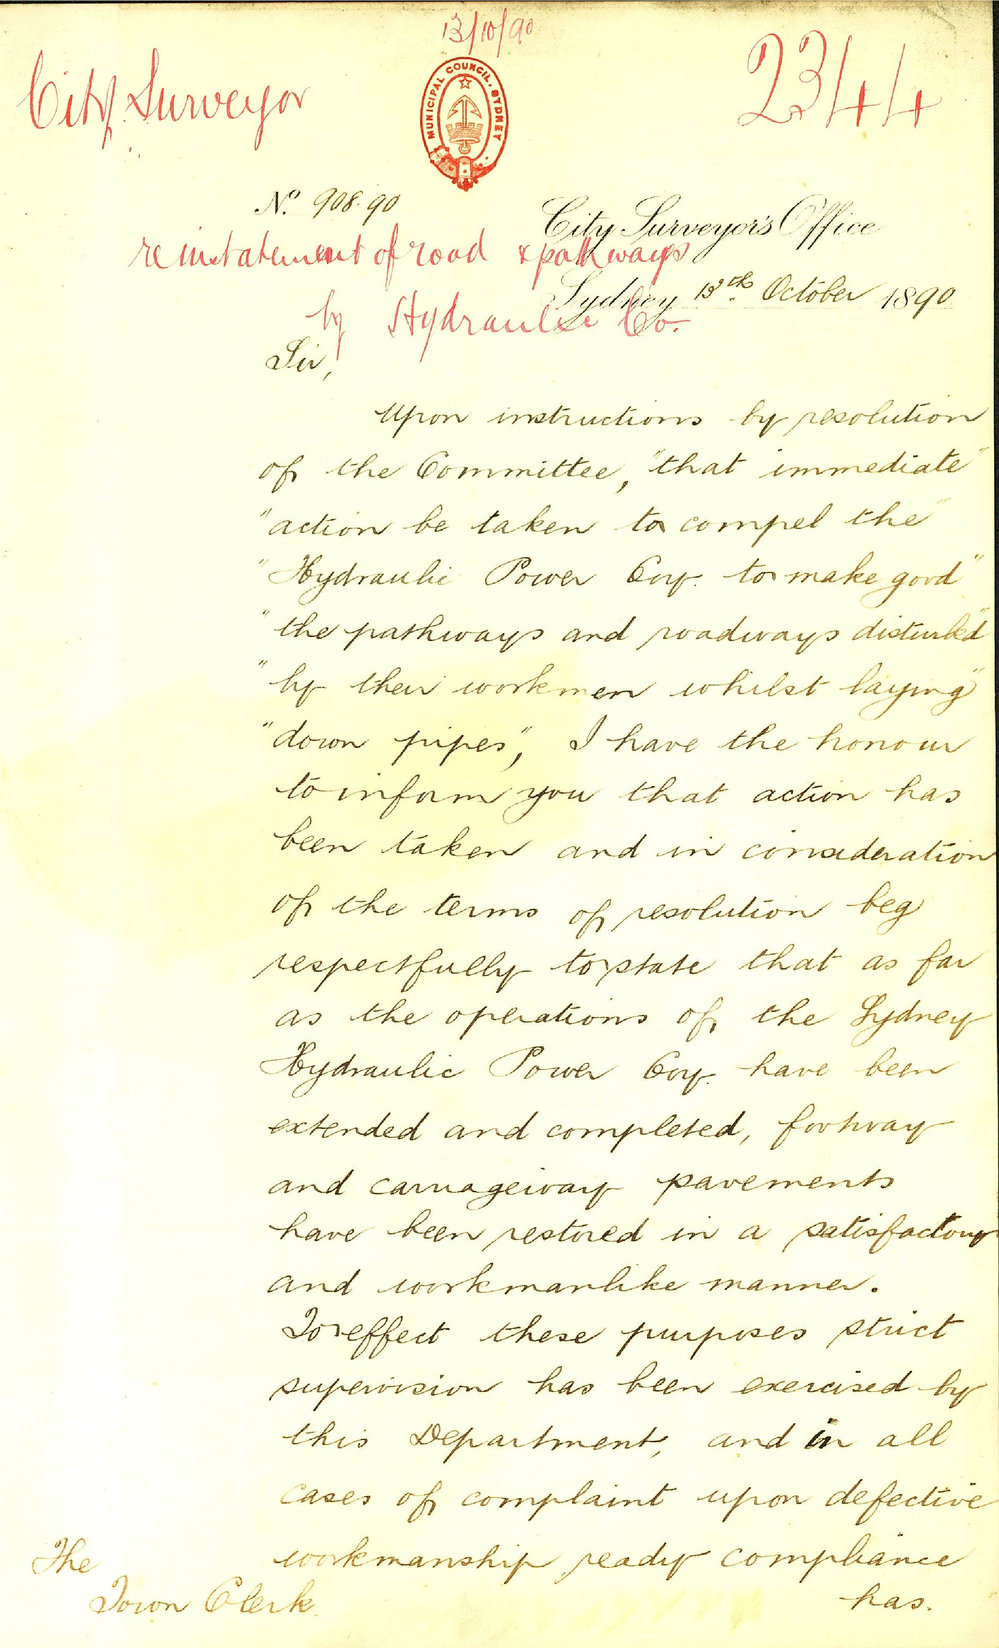 13/10/90
City Surveyor
2344
MUNICIPAL COUNCIL. SYDNEY
No. 908.90
City Surveyor's Office
reinstatement of road & pathways
Sydney 13th October 1890
by Hydraulic Co.
Sir,
Upon instructions by resolution
of the Committee, "that immediate"
"action be taken to compel the"
"Hydraulic Power Coy. to make good"
"the pathways and roadways disturbed"
"by their workmen whilst laying"
"down pipes", I have the honour
to inform you that action has
been taken and in consideration
of the terms of resolution beg
respectfully to state that as far
as the operations of the Sydney
Hydraulic Power Coy. have been
extended and completed, footway
and carriageway pavements
have been restored in a satisfactory
and workmanlike manner.
To effect these purposes strict
supervision has been exercised by
this Department, and in all
cases of complaint upon defective
workmanship ready compliance
has.
The
Town Clerk